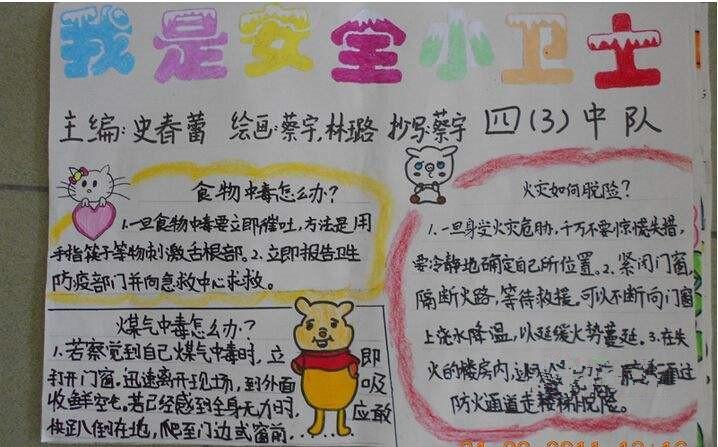 我是安全小卫士
主编:史春蕾 绘画:蔡宇,林璐 抄写:蔡宇 四(3)中队
食物中毒怎么办?
1.一旦食物中毒要立即催吐,方法是用
手指筷子等物刺激舌根部。2.立即报告卫生
防疫部门并向急救中心求救。
煤气中毒怎么办?
1.若察觉到自己煤气中毒时,立即
打开门窗。迅速离开现场,到外面吸
收鲜空气。若已经感到全身无力时,应敢
快趴倒在地,爬至门边或窗前……
火灾如何脱险?
1.一旦身受火灾危胁,千万不要惊慌失措,
要冷静地确定自己所位置。2.紧闭门窗,
隔断火路,等待救援,可以不断向门窗
上浇水降温,以延缓火势蔓延。3.在失
火的楼房内,过
防火通道走楼梯脱险。